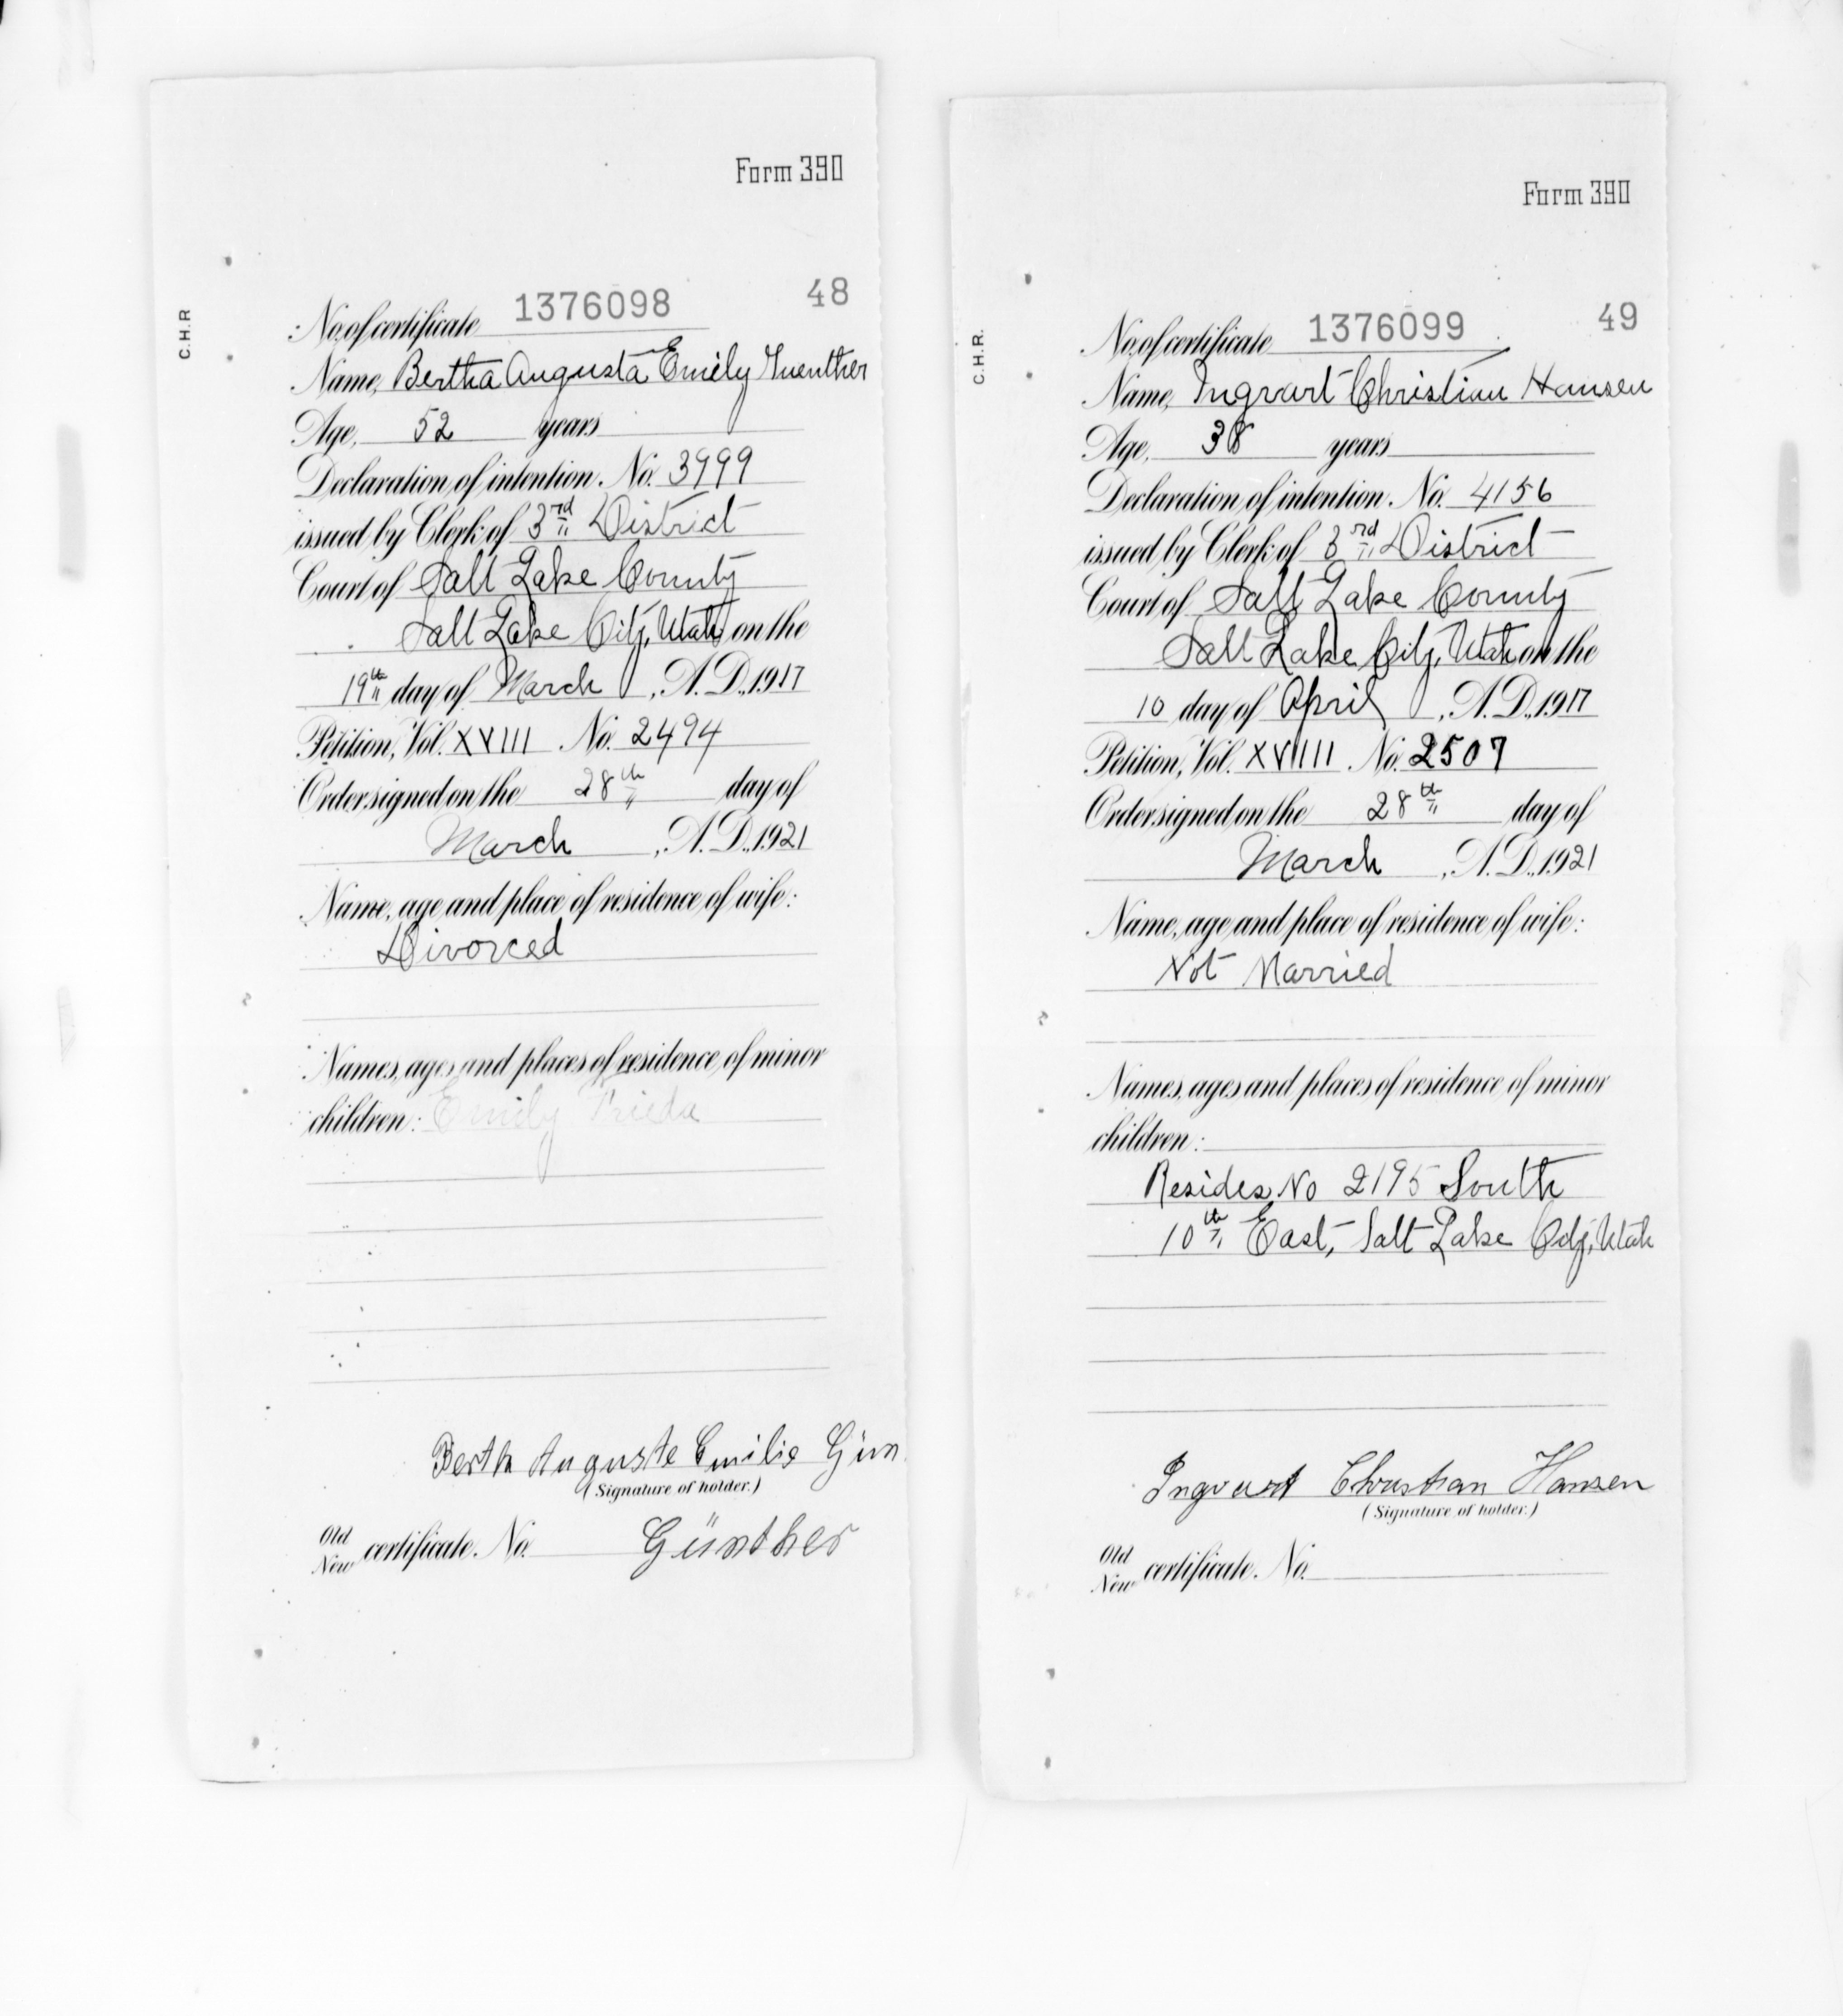 Form 390
C.H.R
48
No. of certificate 1376098
Name, Bertha Augusta Emily Guenther
Age, 52 years
Declaration of intention. No. 3999
issued by Clerk of 3rd District
Court of Salt Lake County
Salt Lake City, Utah on the
19th day of March, A.D., 1917
Petition, Vol. XVIII No. 2494
Order signed on the 28th day of
March, A.D., 1921
Name, age and place of residence of wife:
Divorced
Names, ages and places of residence of minor
children: Emily Frieda
Bertha Auguste Emilie Gün
(Signature of holder.)
Old
New certificate. No. Günther
Form 390
C.H.R.
49
No. of certificate 1376099
Name, Ingvart Christian Hansen
Age, 38 years
Declaration of intention. No. 4156
issued by Clerk of 3rd District
Court of Salt Lake County
Salt Lake City, Utah on the
10 day of April, A.D., 1917
Petition, Vol. XVIII No. 2507
Order signed on the 28th day of
March, A.D., 1921
Name, age and place of residence of wife:
Not Married
Names, ages and places of residence of minor
children:
Resides No 2195 South
10th East, Salt Lake City, Utah
Ingvart Christian Hansen
(Signature of holder.)
Old
New certificate. No.